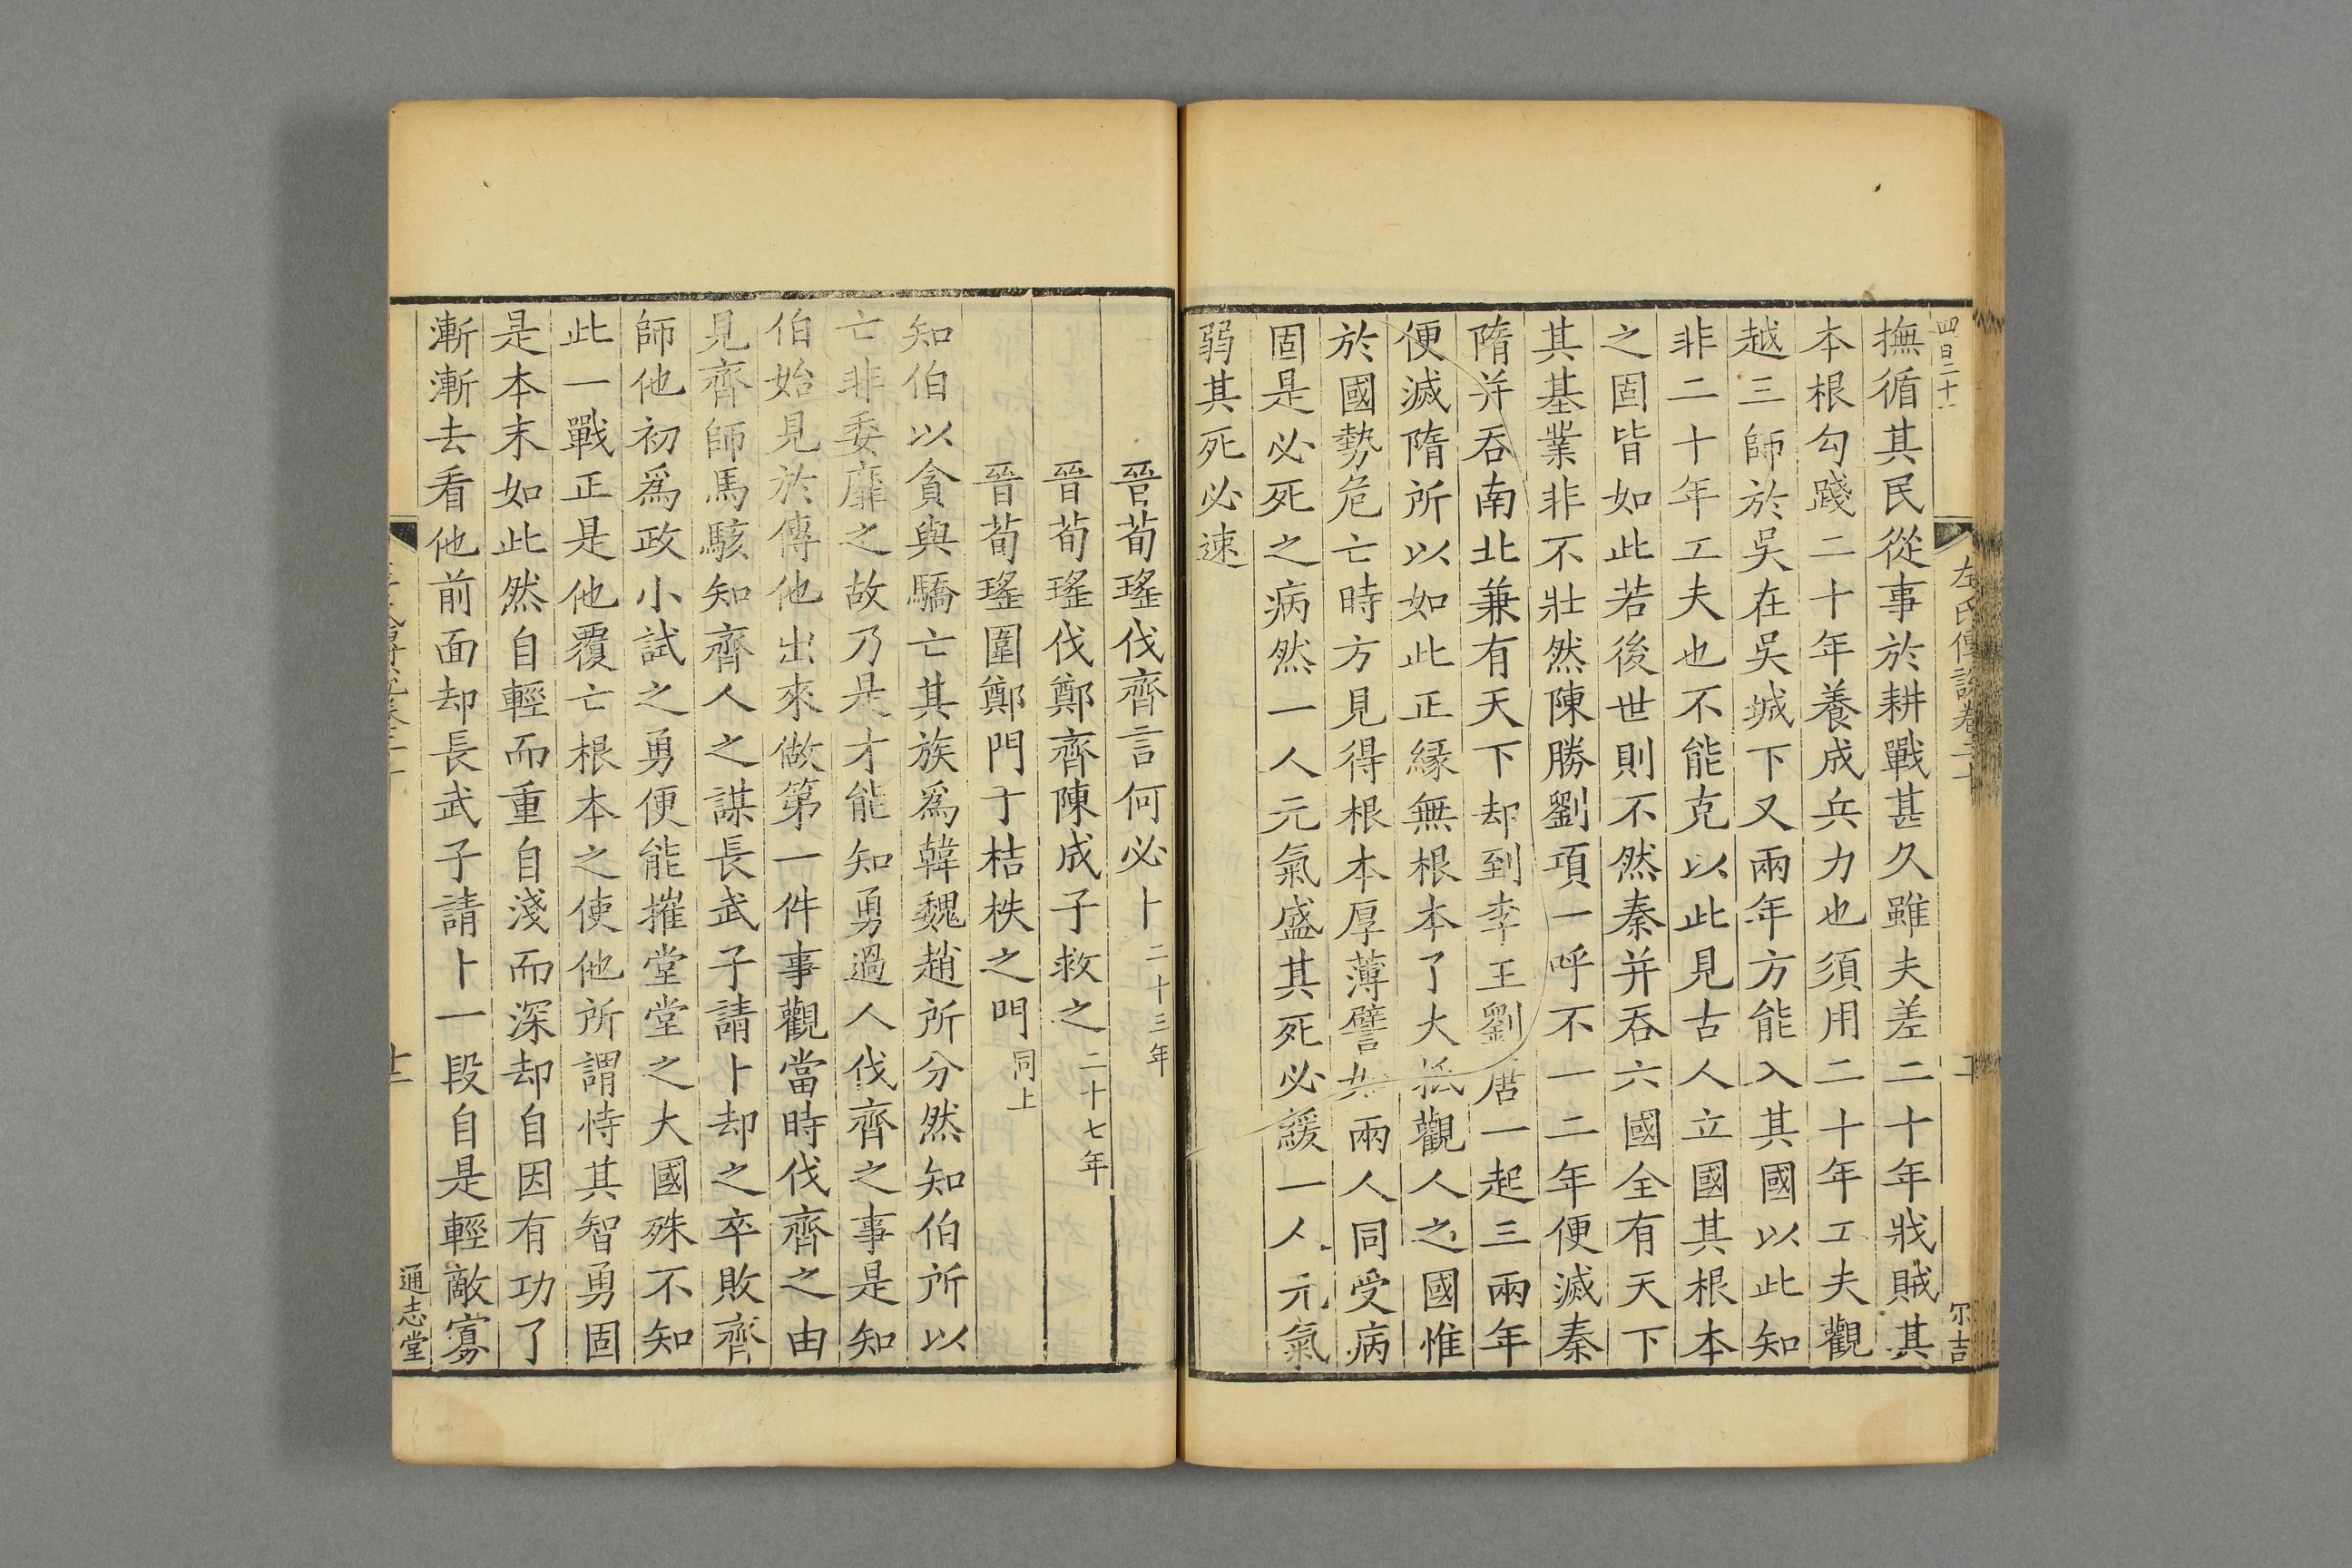 左氏傳說卷二十
尓吉
撫循其民從事於耕戰甚久雖夫差二十年戕賊其
本根勾踐二十年養成兵力也須用二十年工夫觀
越三師於吳在吳城下又兩年方能入其國以此知
非二十年工夫也不能克以此見古人立國其根本
之固皆如此若後世則不然秦并吞六國全有天下
其基業非不壯然陳勝劉項一呼不一二年便滅秦
隋并吞南北兼有天下却到李王劉唐一起三兩年
便滅隋所以如此正縁無根本了大抵觀人之國惟
於國勢危亡時方見得根本厚薄譬如兩人同受病
固是必死之病然一人元氣盛其死必緩一人元氣
弱其死必速
晉荀瑤伐齊言何必卜二十三年
晉荀瑤伐鄭齊陳成子救之二十七年
晉荀瑤圍鄭門于桔柣之門同上
知伯以貪與驕亡其族爲韓魏趙所分然知伯所以
亡非委靡之故乃是才能知勇過人伐齊之事是知
伯始見於傳他出來做第一件事觀當時伐齊之由
見齊師馬駭知齊人之謀長武子請卜却之卒敗齊
師他初爲政小試之勇便能摧堂堂之大國殊不知
此一戰正是他覆亡根本之使他所謂恃其智勇固
是本末如此然自輕而重自淺而深却自因有功了
漸漸去看他前面却長武子請卜一段自是輕敵寡
通志堂